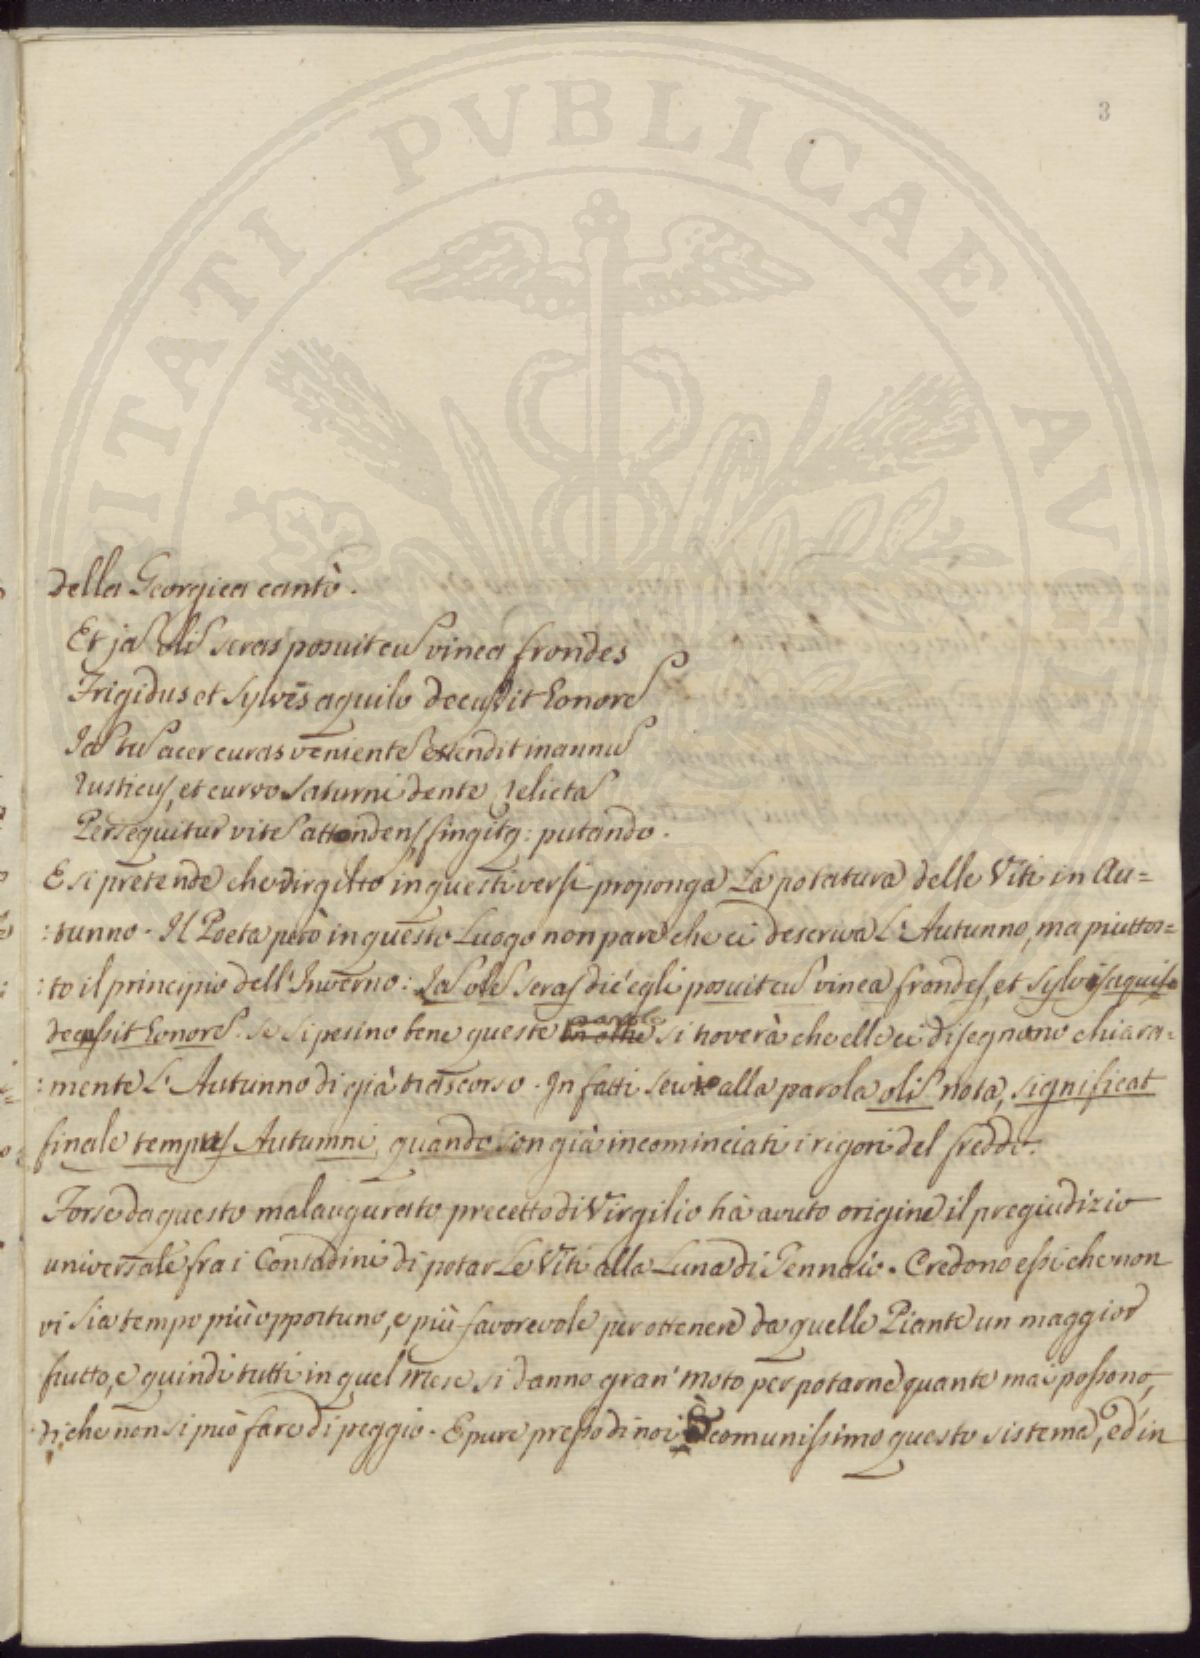 PVBLICAE
3
della Georgica cantò.
Et ja olis seras posuit cu vinea frondes
Frigidus et sylvis aquilo decussit honores
Ja tu acer curas venientes extendit in annus
Rusticus, et curvo Saturni dente relictas
Persequitur vites attondens, fingitq: putando.
E si pretende che Virgilio in questi versi proponga La potatura delle Viti in Au=
:tunno. Il Poeta però in questo Luogo non pare che ci descriva L'Autunno, ma piuttos=
:to il principio dell'Inverno: Ja olis seras dic'egli posuit cu vinea frondes, et sylvis aquilo
decussit honores. Se si pesino bene queste parole si troverà che elle ci disegnono chiara=
:mente L'Autunno di già trascorso. In fatti Servio alla parola olis nota, significat
finale tempus Autumni, quando son già incominciati i rigori del freddo.
Forse da questo malaugurato precetto di Virgilio hà avuto origine il pregiudizio
universale fra i Contadini di potar Le Viti alla Luna di Gennaio. Credono essi che non
vi sia tempo più opportuno, e più favorevole per ottenere da quelle Piante un maggior
frutto, e quindi tutti in quel Mese si danno gran' moto per potarne quante mai possono,
di che non si può fare di peggio. Epure presso di noi è comunissimo questo sistema, ed in